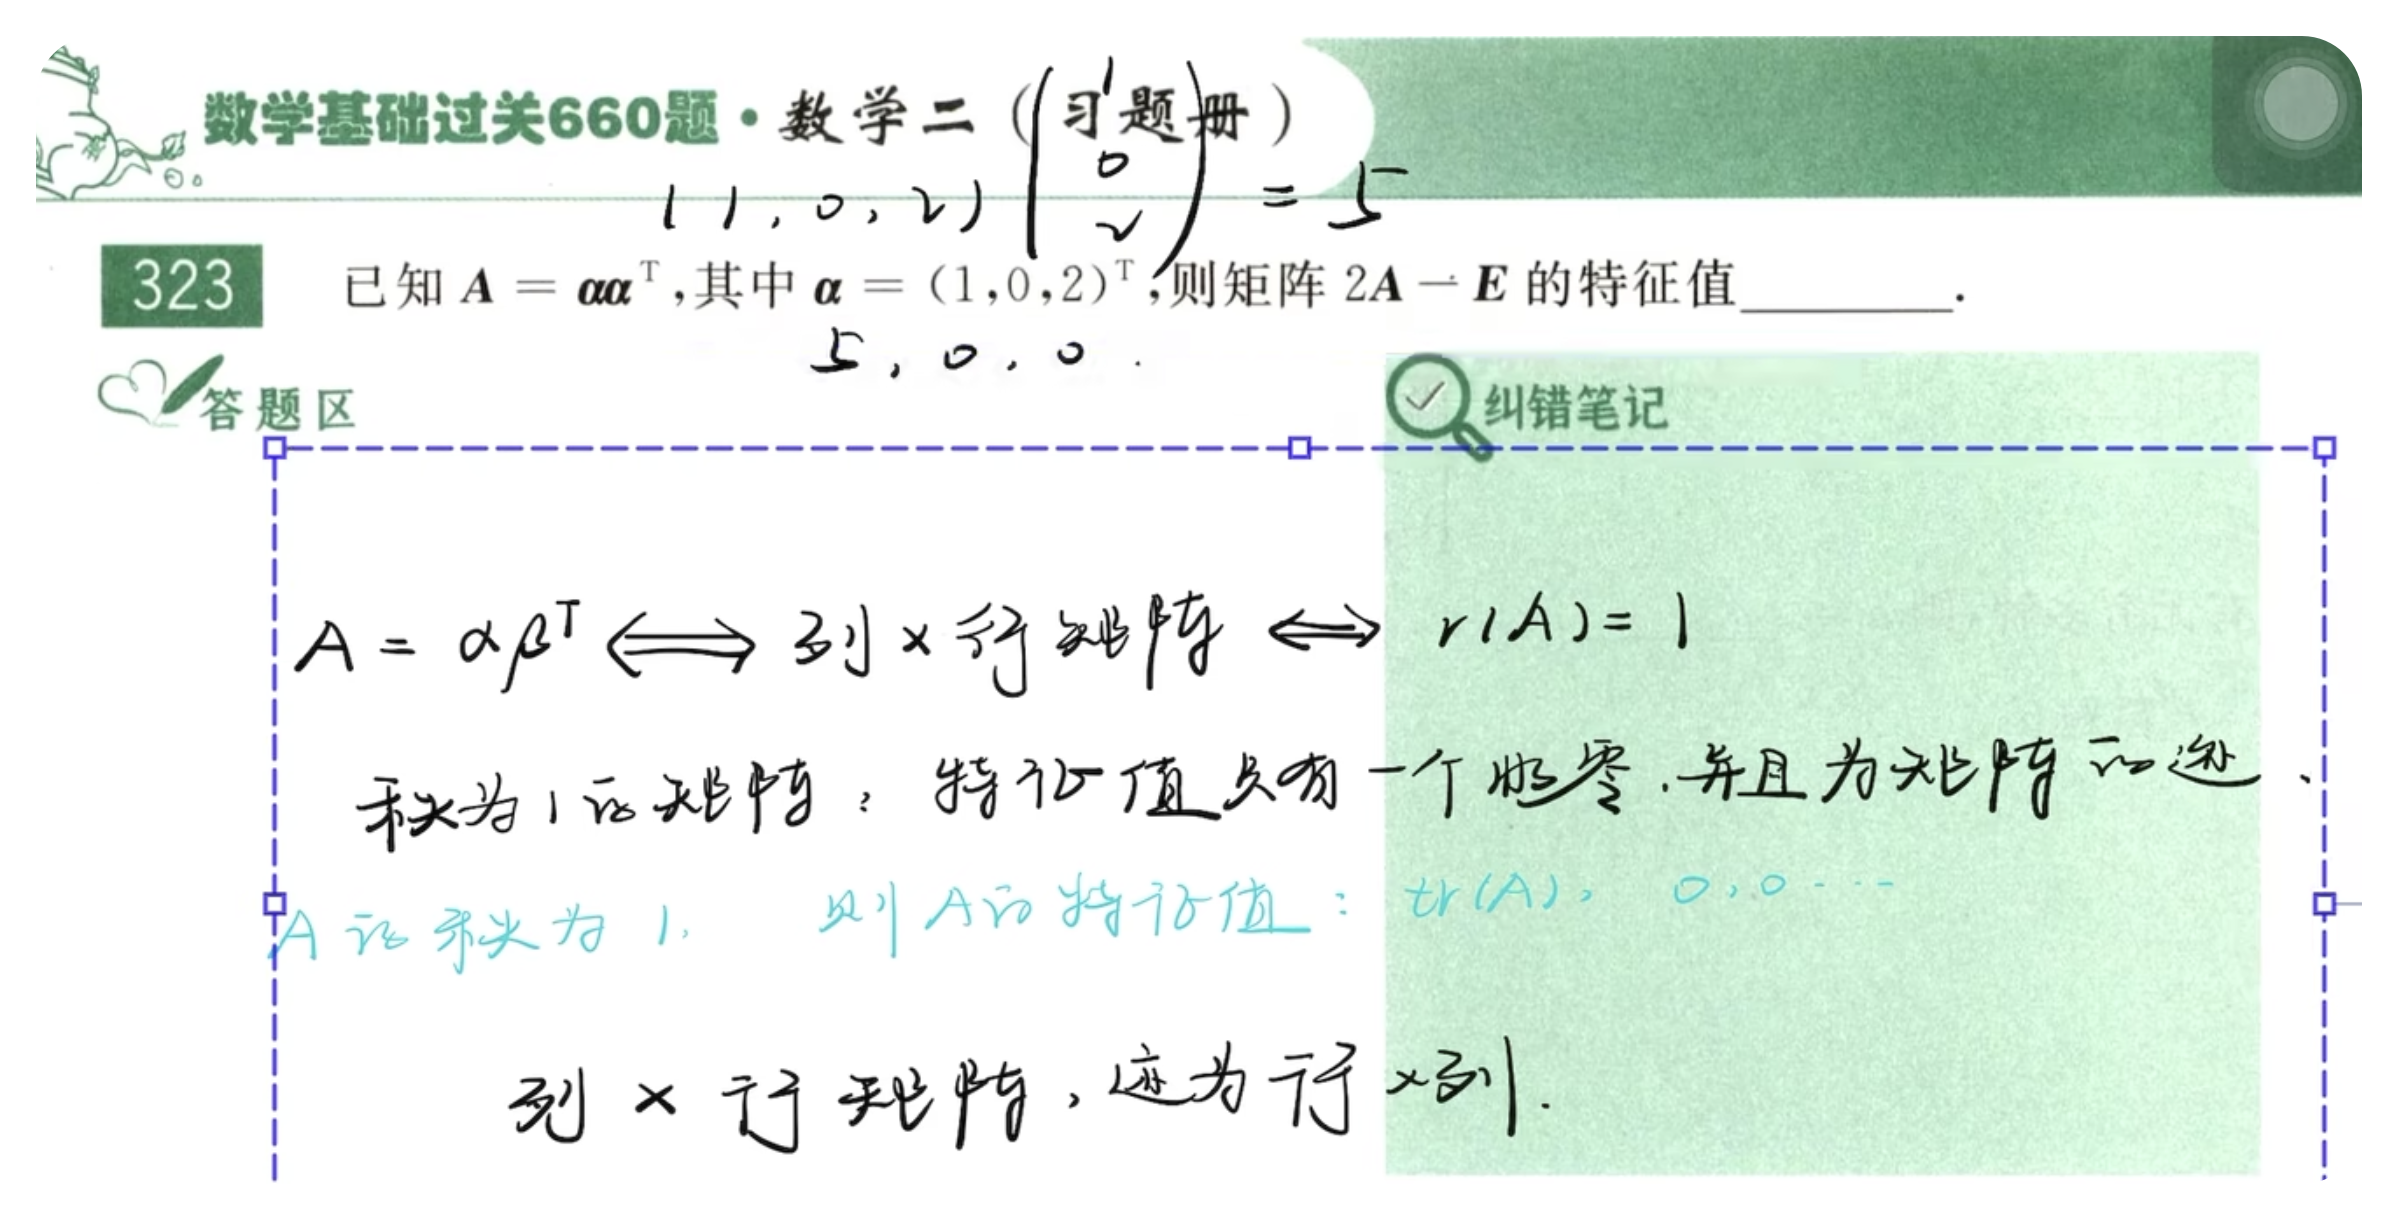 数学基础过关660题·数学二（习题册）
(1,0,2)(1 0 2) = 5
323 已知 A = αα^T,其中 α = (1,0,2)^T,则矩阵 2A − E 的特征值________.
5, 0, 0.
答题区
纠错笔记
A = αβ^T ⟺ 列×行矩阵 ⟺ r(A) = 1
秩为1的矩阵：特征值只有一个非零.并且为矩阵的迹.
A的秩为1, 则A的特征值：tr(A), 0,0···
列×行矩阵,迹为行×列.